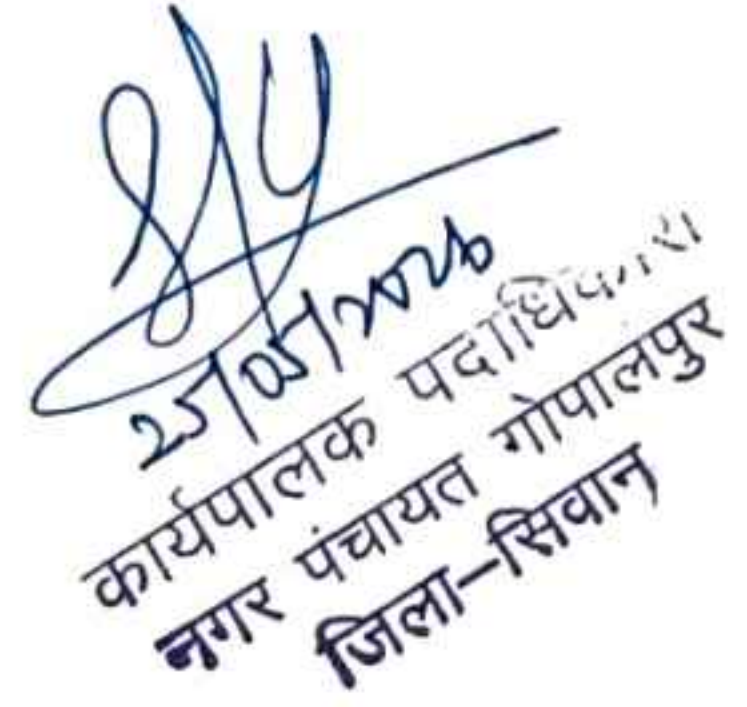 25/05/2026
कार्यपालक पदाधिकारी
नगर पंचायत गोपालपुर
जिला-सिवान